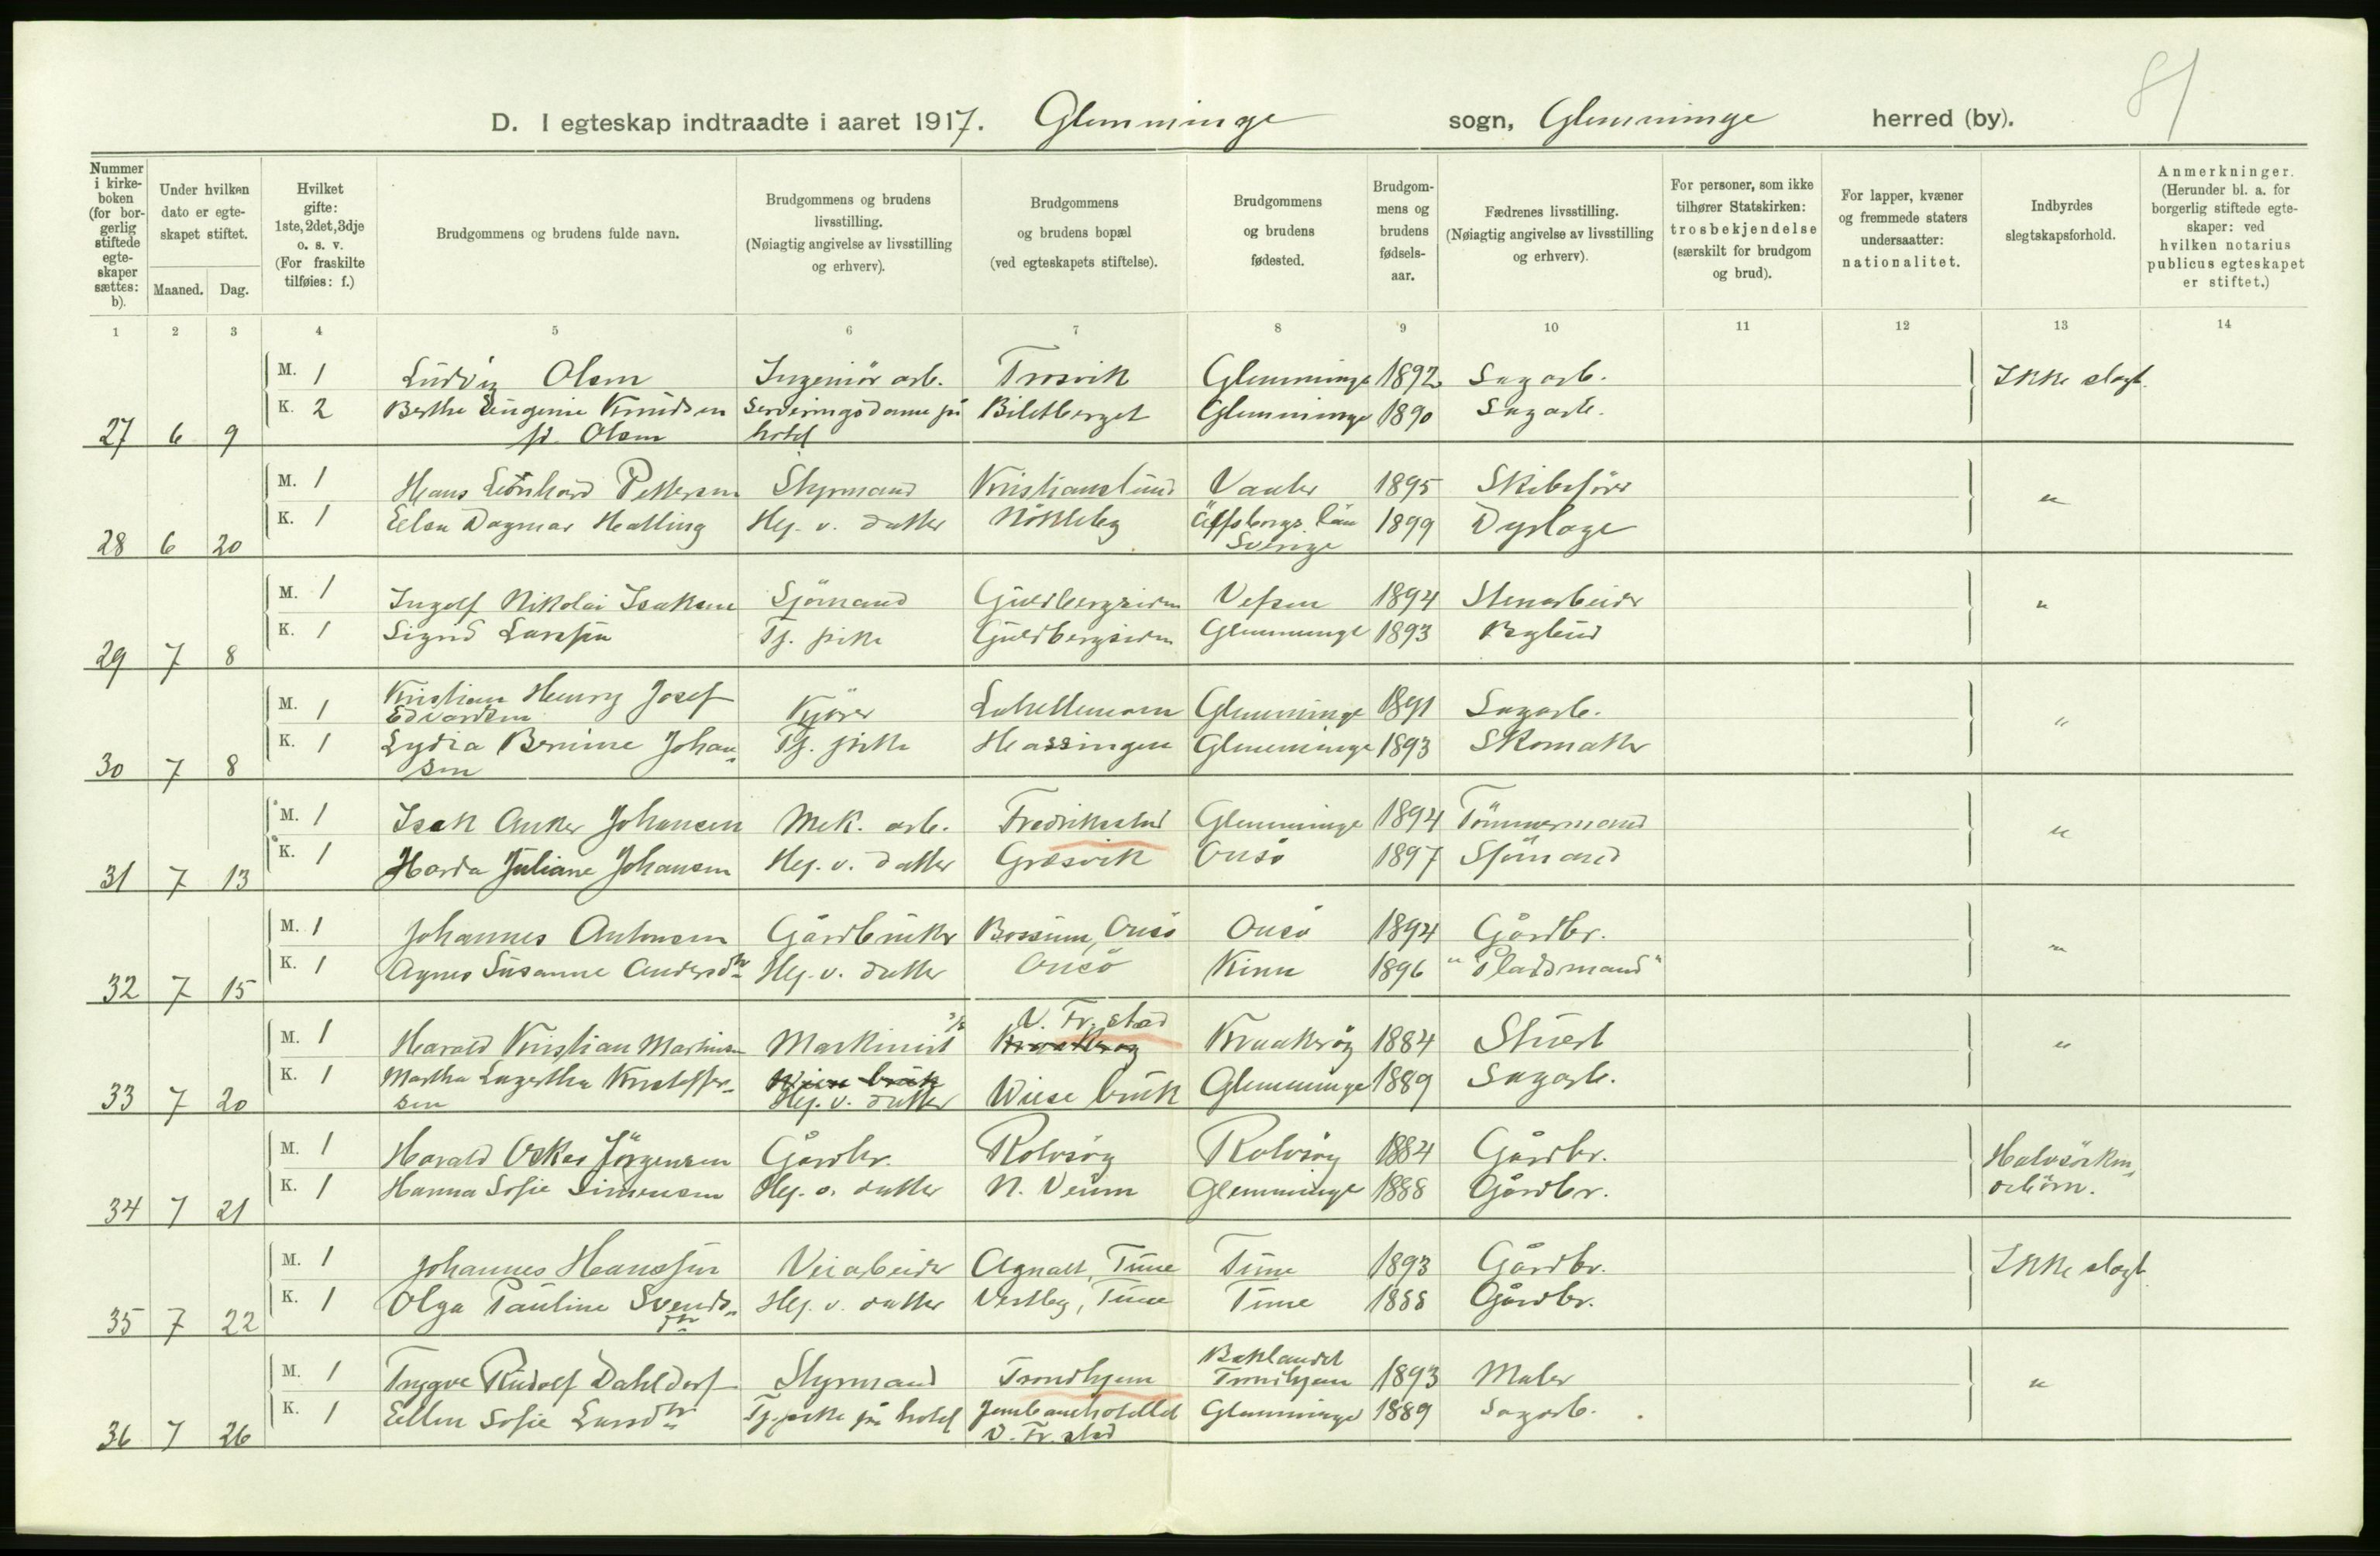 81
D. I egteskap indtraadte i aaret 1917. Glemminge sogn, Glemminge herred (by).
Nummer i kirkeboken (for borgerlig stiftede egteskaper sættes: b). Under hvilken dato er egteskapet stiftet. Maaned. Dag. Hvilket gifte: 1ste, 2det, 3dje o. s. v. (For fraskilte tilføies: f.) Brudgommens og brudens fulde navn. Brudgommens og brudens livsstilling. (Nøiagtig angivelse av livsstilling og erhverv). Brudgommens og brudens bopæl (ved egteskapets stiftelse). Brudgommens og brudens fødested. Brudgommens og brudens fødselsaar. Fædrenes livsstilling. (Nøiagtig angivelse av livsstilling og erhverv). For personer, som ikke tilhører Statskirken: trosbekjendelse (særskilt for brudgom og brud). For lapper, kvæner og fremmede staters undersaatter: nationalitet. Indbyrdes slegtskapsforhold. Anmerkninger. (Herunder bl. a. for borgerlig stiftede egteskaper: ved hvilken notarius publicus egteskapet er stiftet.)
1 2 3 4 5 6 7 8 9 10 11 12 13 14
M. 1 Ludvig Olsen Ingeniör arb. Trosvik Glemminge 1892 Sagarb. Ikke slegt.
K. 2 Berthe Eugenie Knudsen Serveringsdame på Biletberget Glemminge 1890 Sagarb.
27 6 9 f. Olsen hotel
M. 1 Hans Leonhard Pettersen Styrmand Kristianslund Vaaler 1895 Skibsfører "
K. 1 Ellen Dagmar Halling Hj. v. datter Nökleby Älfsborgs län 1899 Dyrlæge
28 6 20 Sverige
M. 1 Ingolf Nikolai Isaksen Sjömand Guldbergsiden Vefsen 1894 Stenarbeider "
K. 1 Sigrid Larsen Tj. pike Guldbergsiden Glemminge 1893
29 7 8
M. 1 Kristian Henry Josef
Edvardsen Kjörer Glemminge 1891 Sagarb. "
K. 1 Lydia Bernine Johan- Tj. pike Hassingen Glemminge 1893 Skomaker
30 7 8 sen
M. 1 Isak Anker Johansen Mek. arb. Fredrikstad Glemminge 1894 Tömmermand "
K. 1 Harda Juliane Johansen Hj. v. datter Græsvik Onsö 1897 Sjömand
31 7 13
M. 1 Johannes Antonsen Gårdbruker Bossum, Onsö Onsö 1894 Gårdbr. "
K. 1 Agnes Susanne Andersdtr Hj. v. datter Onsö Kinn 1896 "Pladsmand"
32 7 15
V. Fr. stad
M. 1 Harald Kristian Martinsen Maskinist Kraakerøy Kraakerøy 1884 Stuert "
K. 1 Martha Lagertha Kristoffer- Wiese bruk Wiese bruk Glemminge 1889 Sagarb.
33 7 20 sen Hj. v. datter
M. 1 Harald Oskar Jörgensen Gårdbr. Rolvsöy Rolvsöy 1884 Gårdbr. Halvsösken-
K. 1 Hanna Sofie Simensen Hj. v. datter N. Veum Glemminge 1888 Gårdbr. debörn.
34 7 21
M. 1 Johannes Hanssen Veiarbeider Agnalt, Tune Tune 1893 Gårdbr. Ikke slegt
K. 1 Olga Pauline Svends- Hj. v. datter Vestby, Tune Tune 1888 Gårdbr.
35 7 22 dtr
Baklandet
M. 1 Trygve Rudolf Dahldorf Styrmand Trondhjem Trondhjem 1893 Maler "
K. 1 Ellen Sofie Larsdtr Tj. pike på hotel Jernbanehotellet Glemminge 1889 Sagarb.
36 7 26 V. Fr. stad